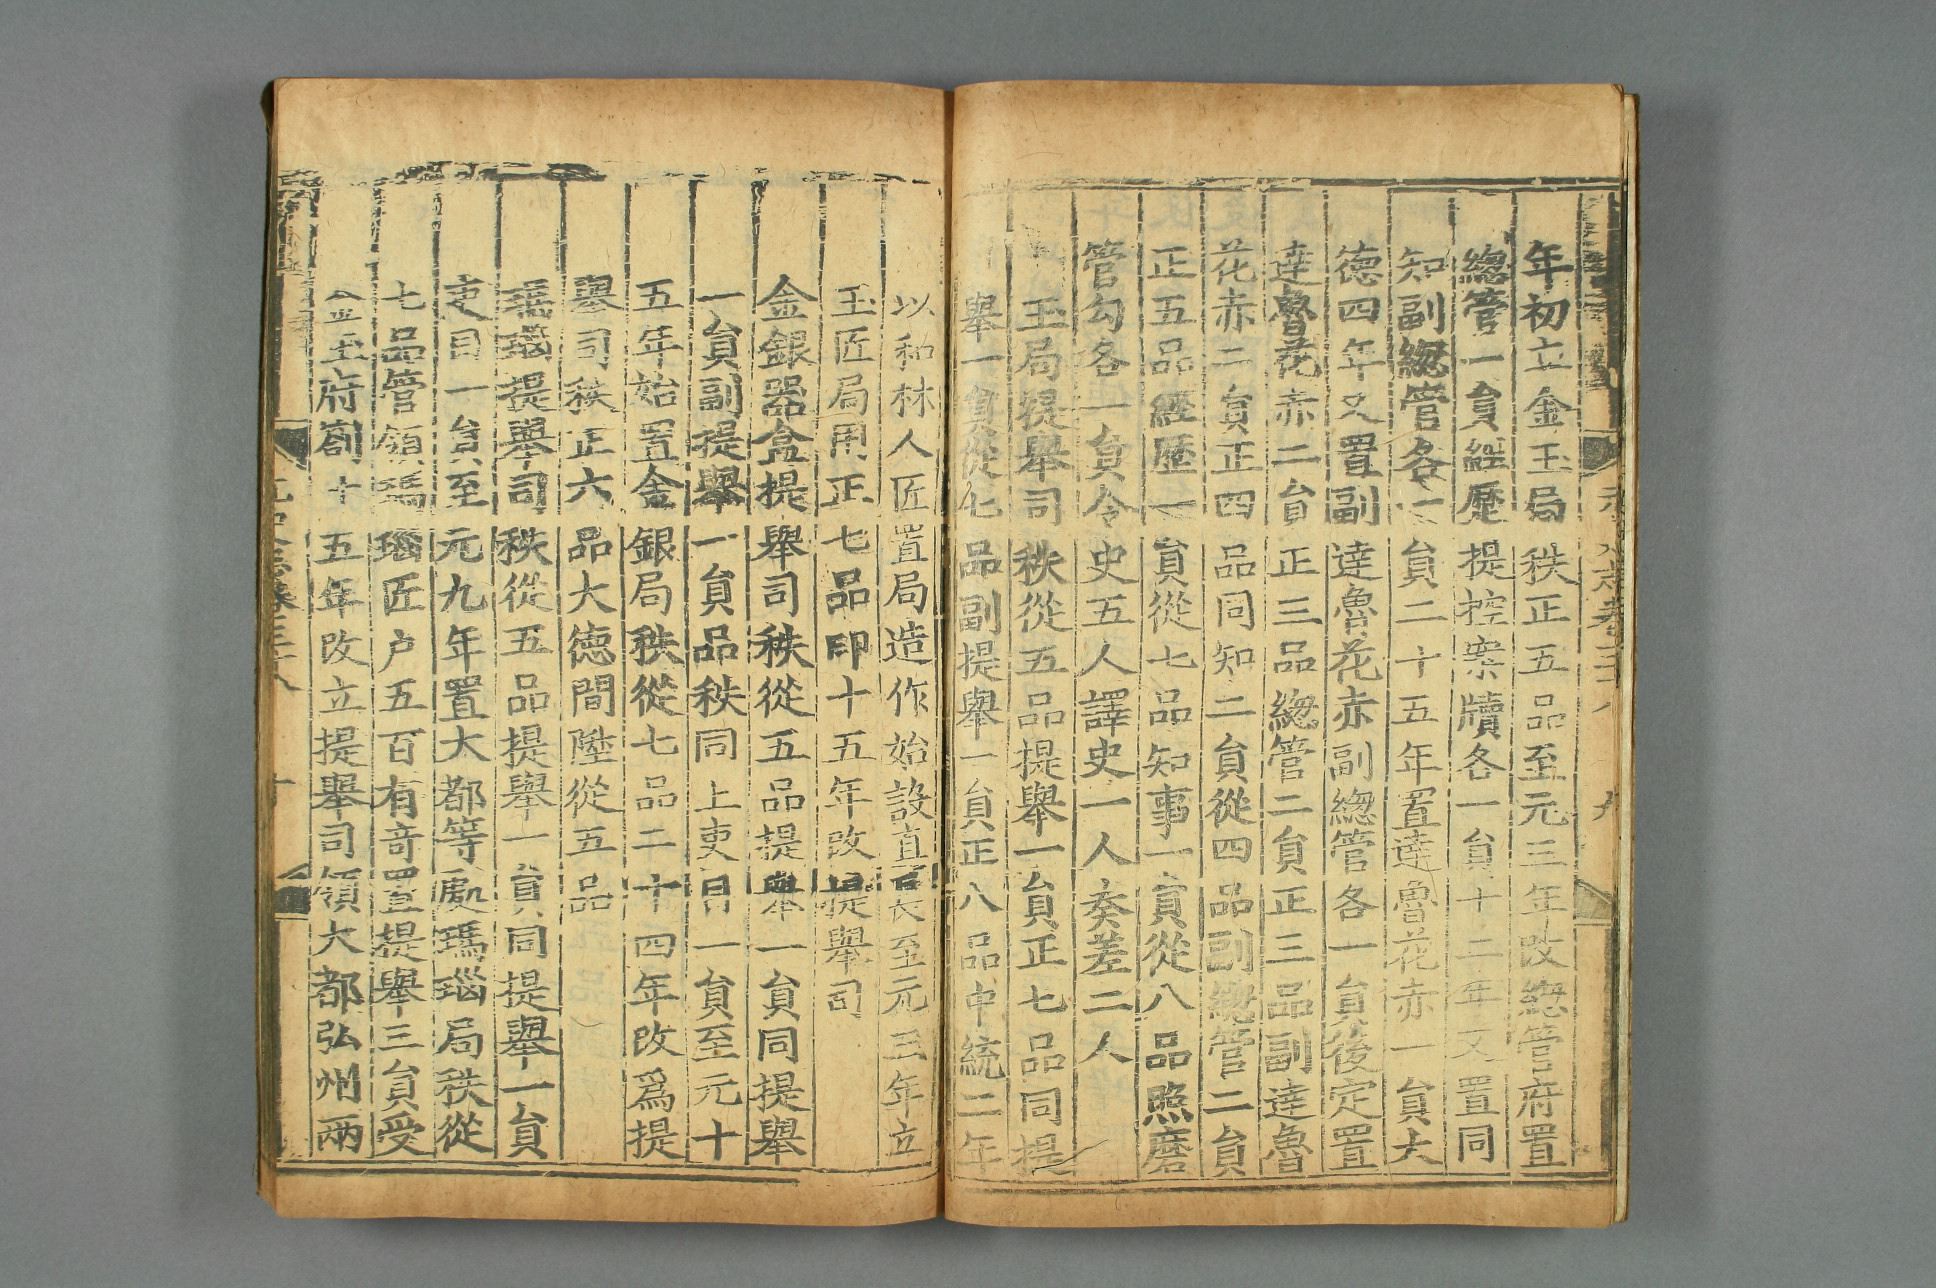 年初立金玉局秩正五品至元三年改緫管府置
緫管一負經歷提控案牘各一負十二年又置同
知副緫管各一負二十五年置達魯花赤一負大
德四年又置副達魯花赤副緫管各一負後定置
達魯花赤二負正三品緫管二負正三品副達魯
花赤二負正四品同知二負從四品副緫管二負
正五品經歷一負從七品知事一負從八品照磨
管勾各一負令史五人譯史一人奏差二人
玉局提舉司秩從五品提舉一負正七品同提
舉一負從七品副提舉一負正八品中統二年
以和林人匠置局造作始設直長至元三年立
玉匠局用正七品印十五年改提舉司
金銀器盒提舉司秩從五品提舉一負同提舉
一負副提舉一負品秩同上吏目一負至元十
五年始置金銀局秩從七品二十四年改爲提
舉司秩正六品大德間陞從五品
瑪瑙提舉司秩從五品提舉一負同提舉一負
吏目一負至元九年置大都等處瑪瑙局秩從
七品管領瑪瑙匠户五百有竒置提舉三負受
金玉府劄十五年改立提舉司領大都弘州兩
元史志卷三十八 十